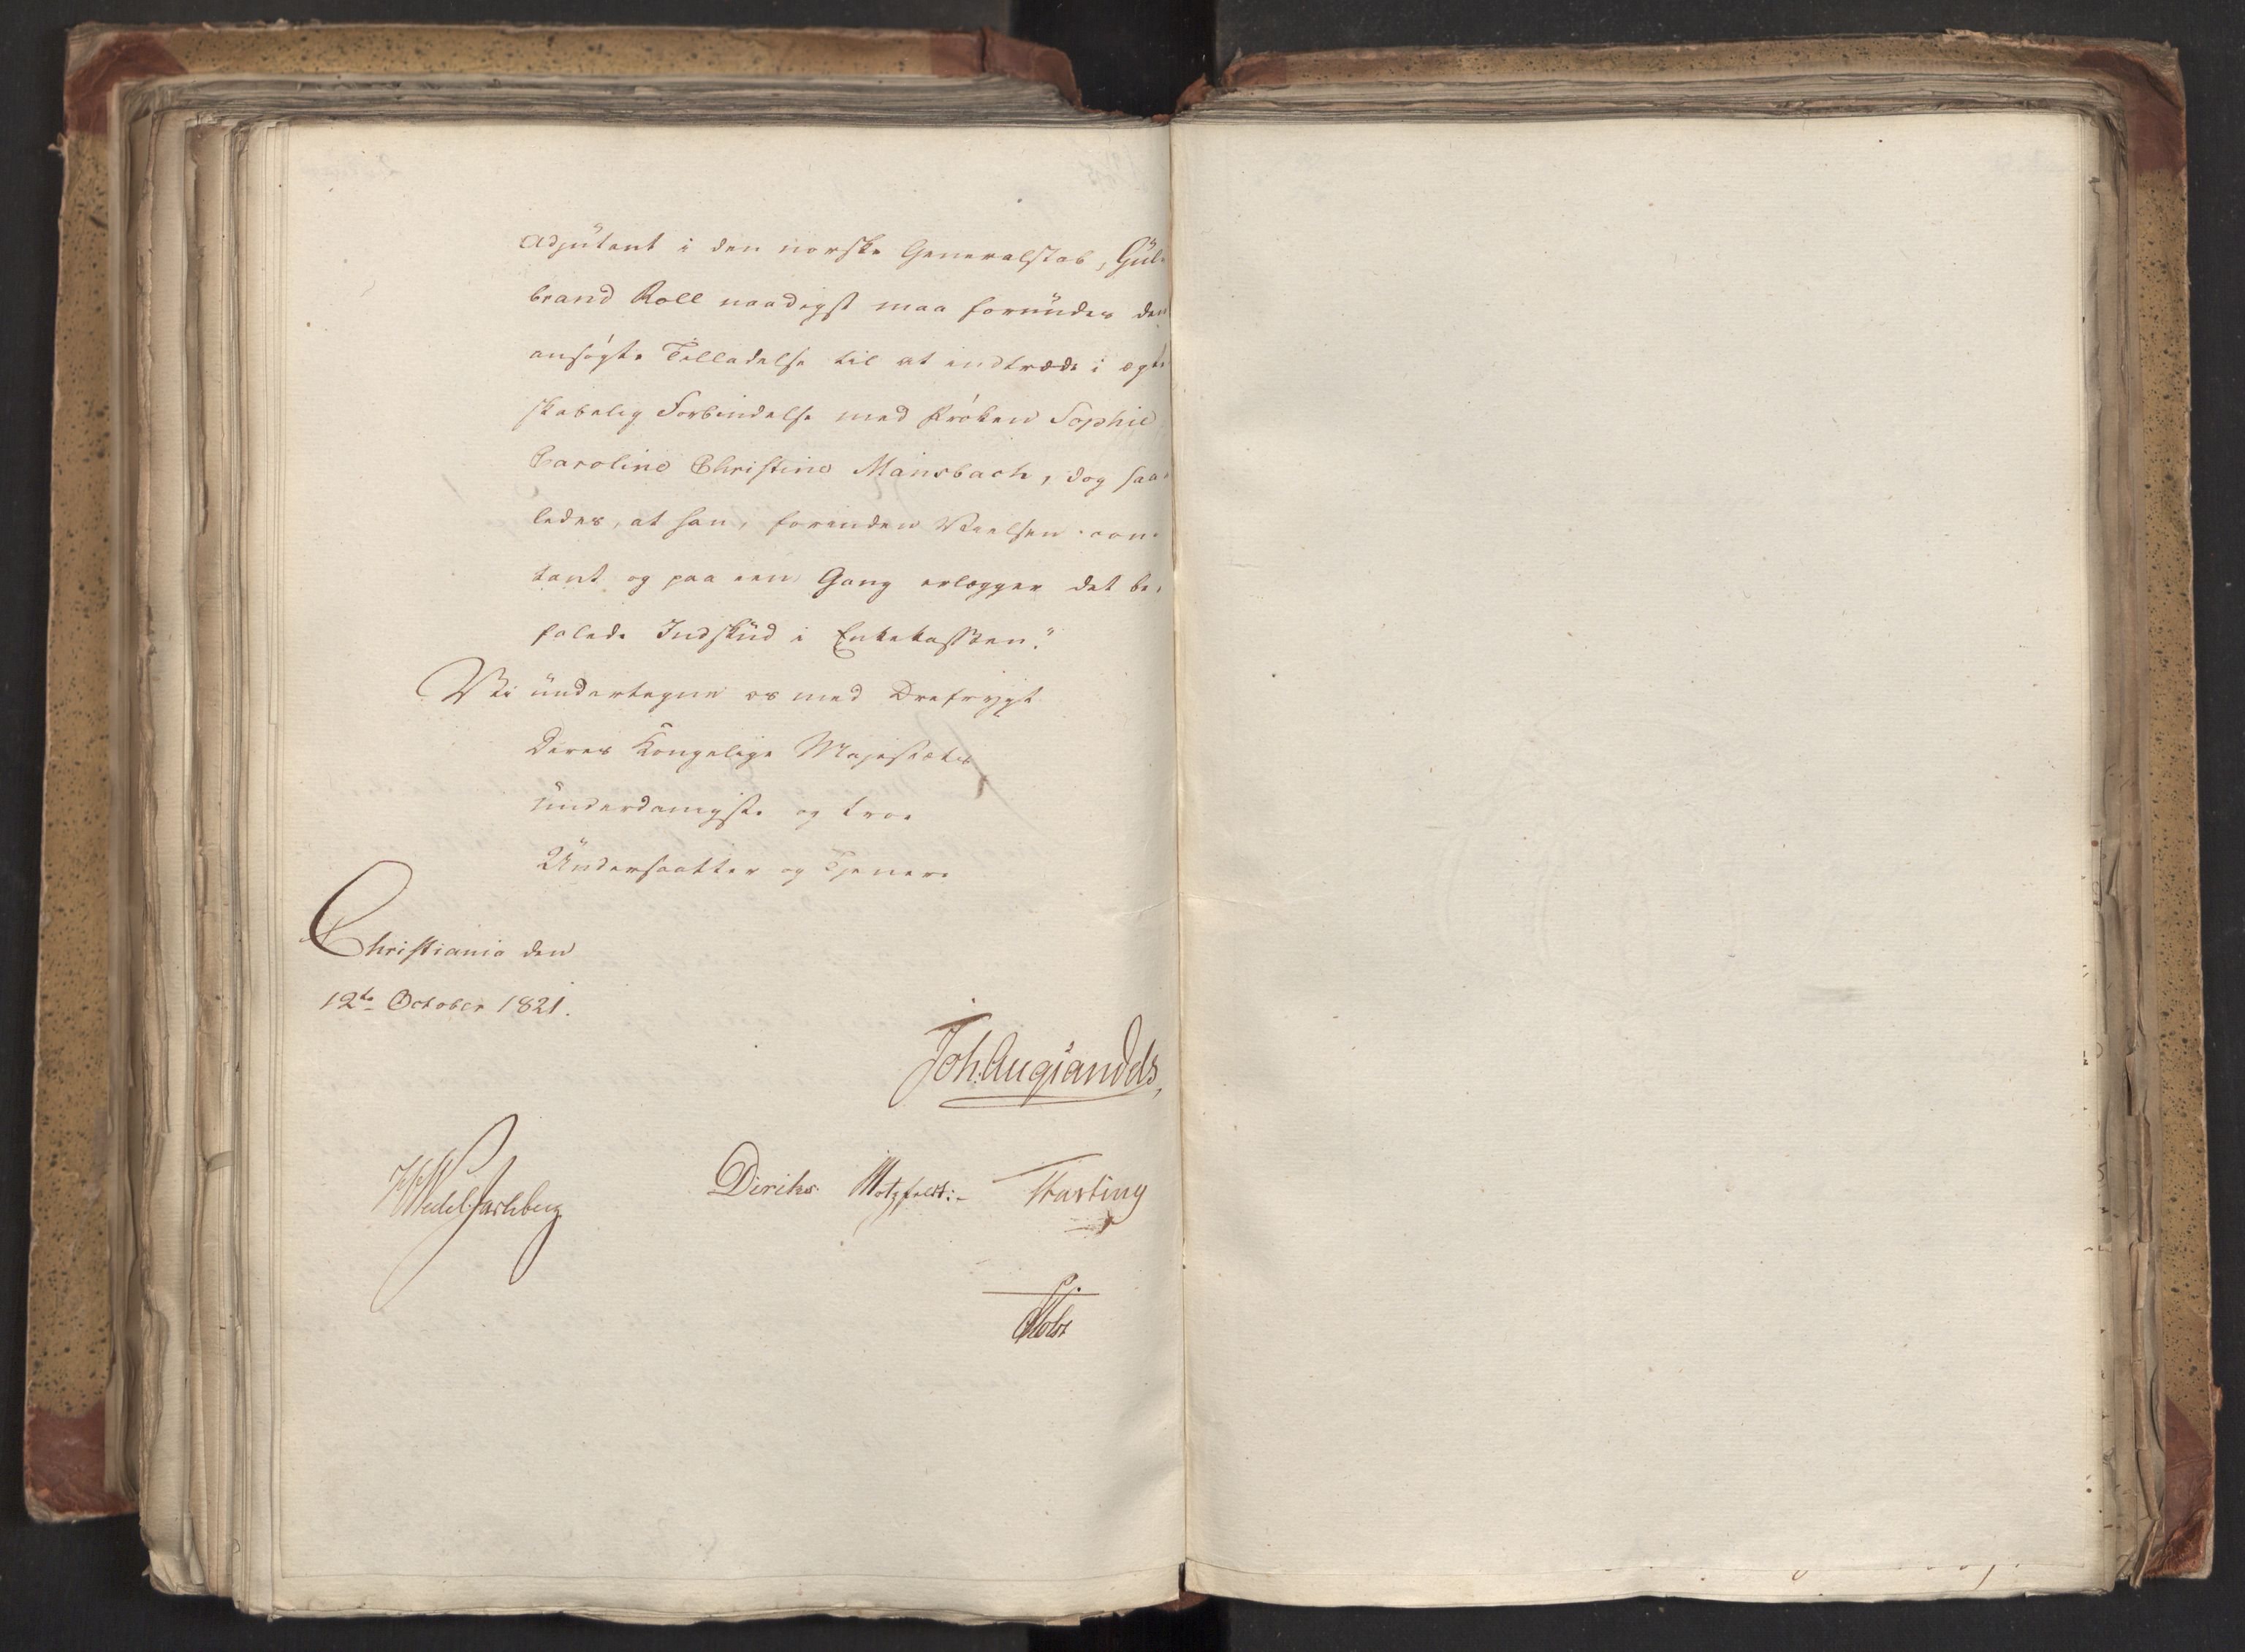 Adjutant i den norske Generalstab, Gul-
brand Roll naadigst maa forundes den
ansøgte Tilladelse til at indtræde i ægte
skabelig Forbindelse med Frøken Sophie
Caroline Christine Mansbach, dog saa-
ledes, at han, forinden Vielsen con-
tant og paa een Gang erlægger det be-
falede Indskud i Enkekassen."
Vi undertegne os med Ærefrygt
Deres Kongelige Majestæts
underdanigste og troe
Undersaatter og Tjenere
Christiania den
12te October 1821.
Joh. Aug: Sandels,
HWedel Jarlsberg Diriks. Motzfeldt:- Fasting
Holst